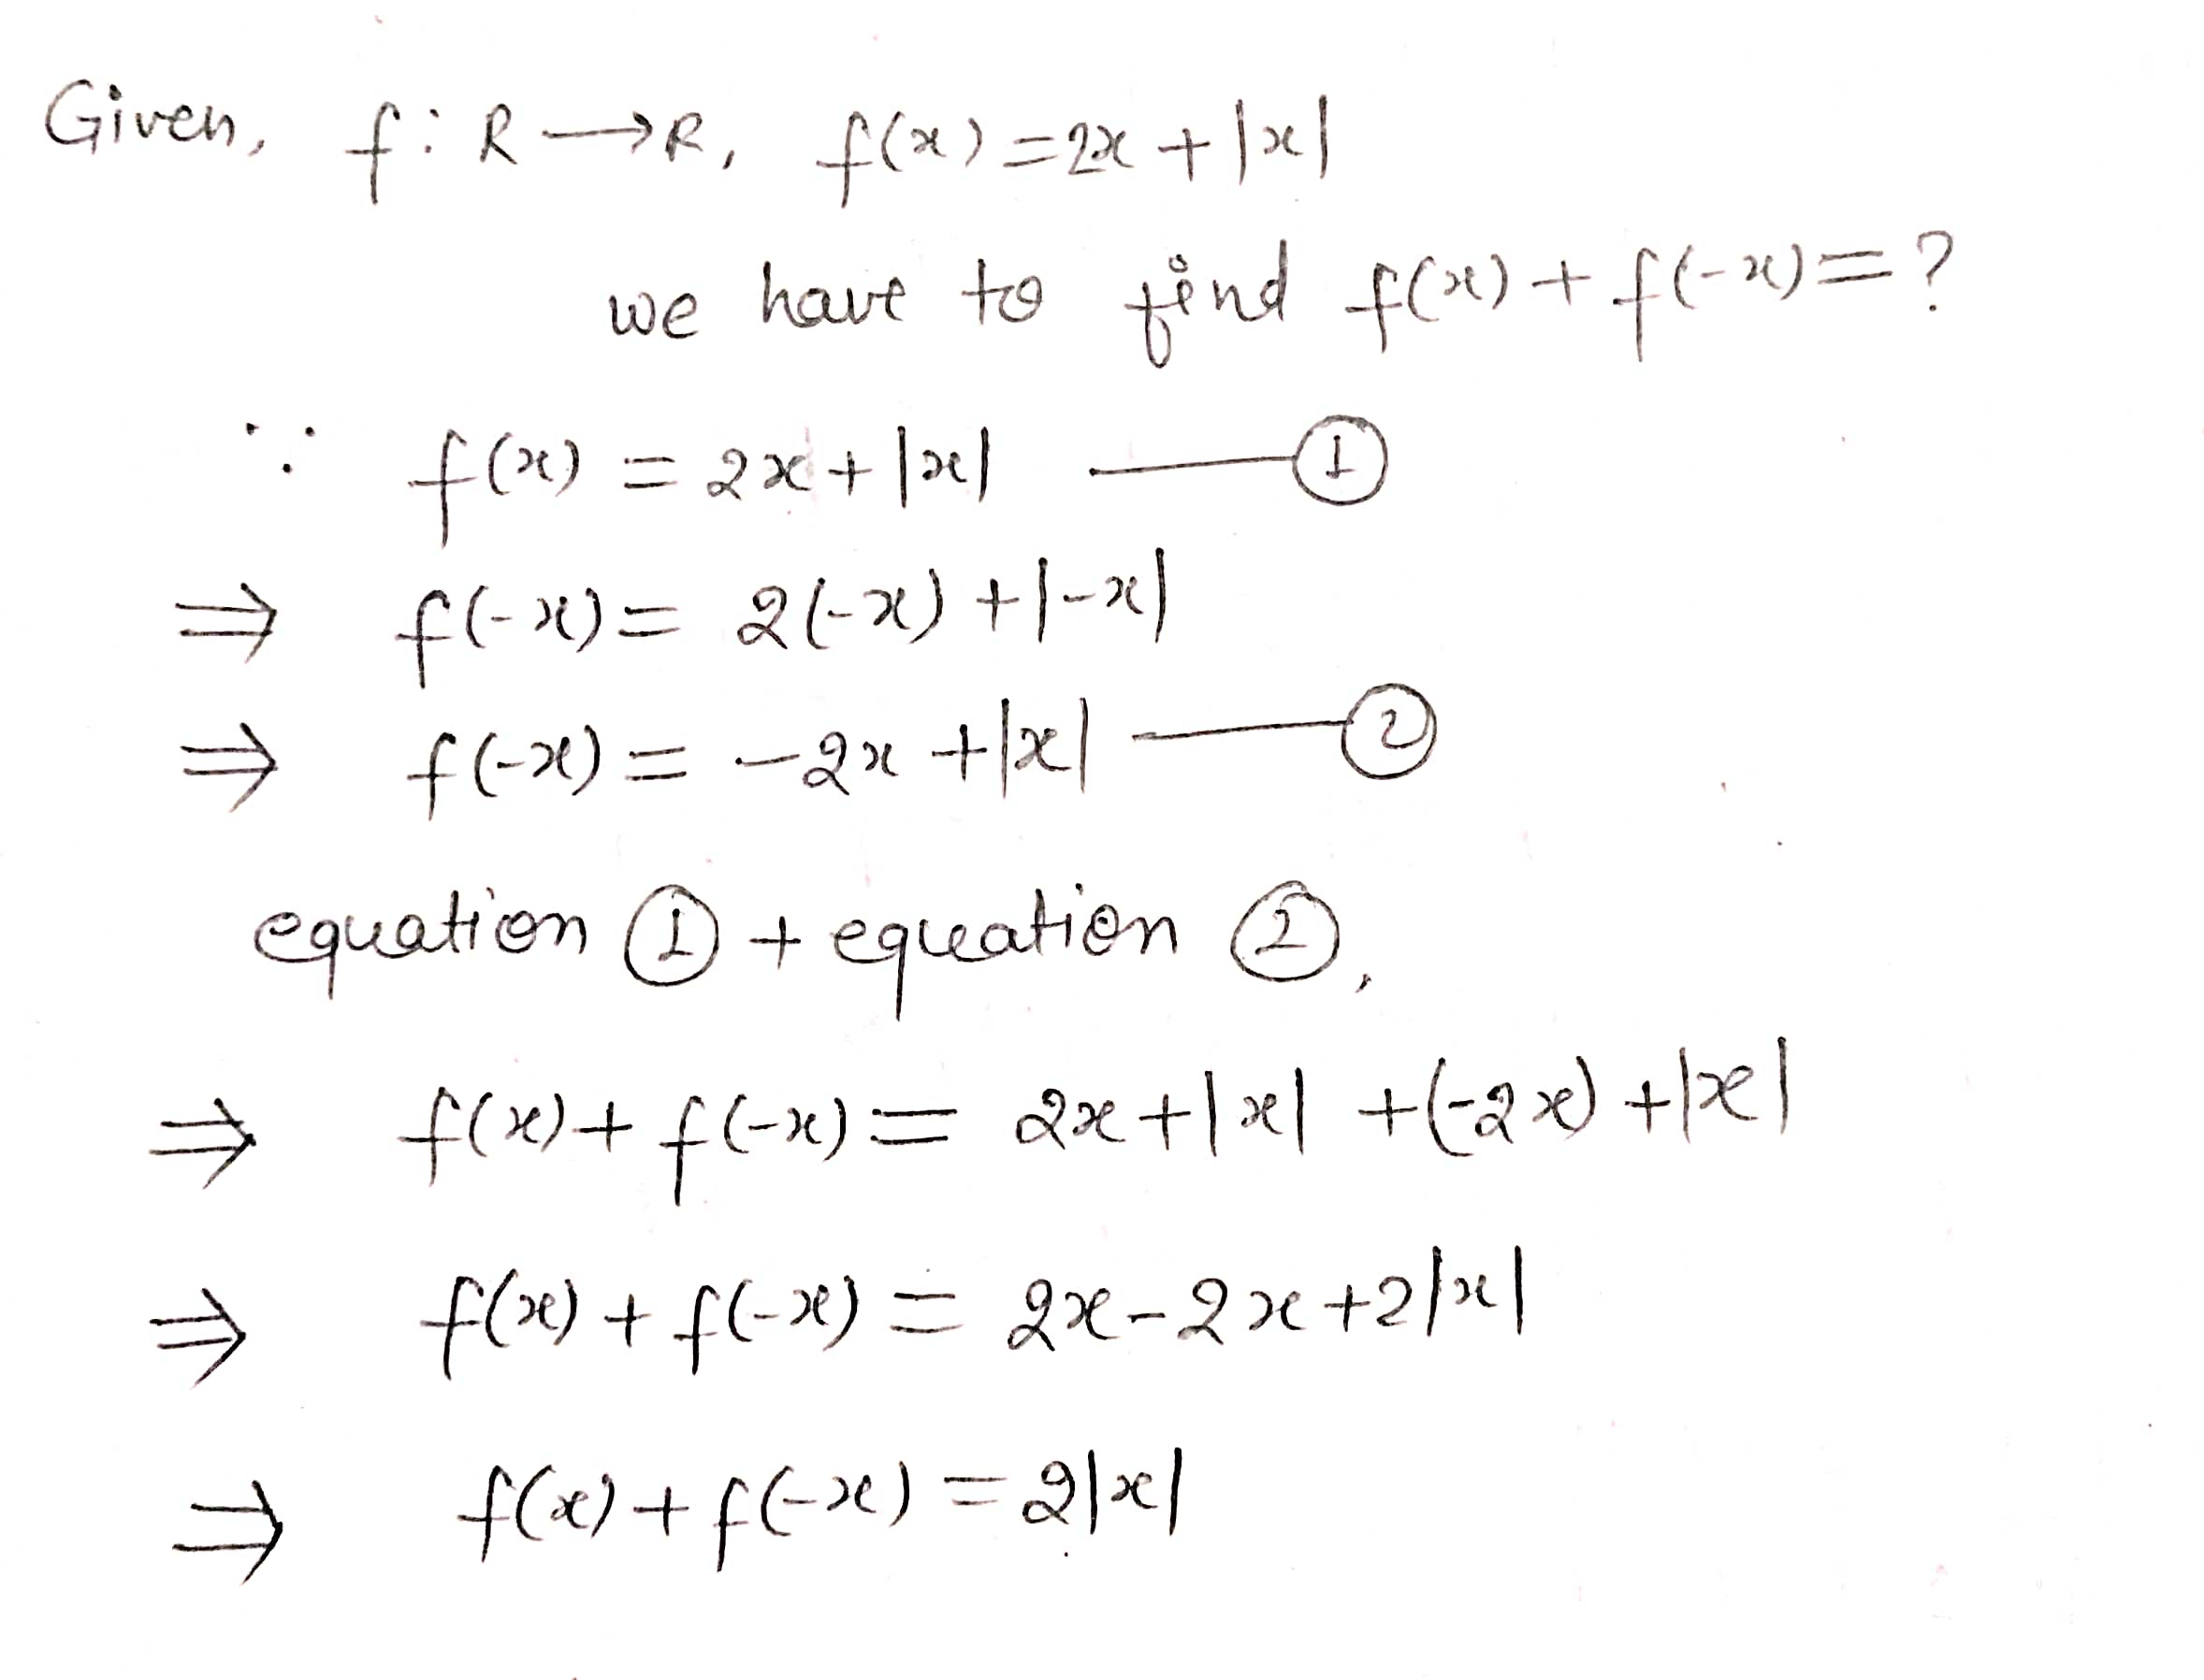 Given, f: R⟶R, f(x) = 2x + |x|
we have to find f(x) + f(-x) = ?
∵ f(x) = 2x + |x| —— ①
⇒ f(-x) = 2(-x) + |-x|
⇒ f(-x) = -2x + |x| —— ②
equation ① + equation ②,
⇒ f(x) + f(-x) = 2x + |x| + (-2x) + |x|
⇒ f(x) + f(-x) = 2x - 2x + 2|x|
⇒ f(x) + f(-x) = 2|x|